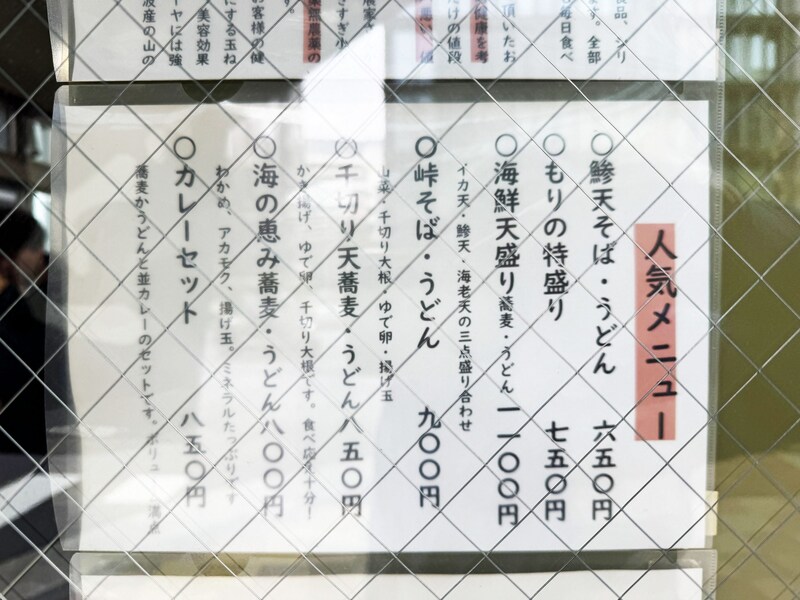 人気メニュー
〇鯵天そば・うどん 六五〇円
〇もりの特盛り 七五〇円
〇海鮮天盛り蕎麦・うどん 一一〇〇円
イカ天・鯵天・海老天の三点盛り合わせ
〇峠そば・うどん 九〇〇円
山菜・千切り大根・ゆで卵・揚げ玉
〇千切り天蕎麦・うどん 八五〇円
かき揚げ、ゆで卵、千切り大根です。食べ応え十分！
〇海の恵み蕎麦・うどん 八〇〇円
わかめ、アカモク、揚げ玉。ミネラルたっぷりです
〇カレーセット 八五〇円
蕎麦かうどんと並カレーのセットです。ボリューム満点